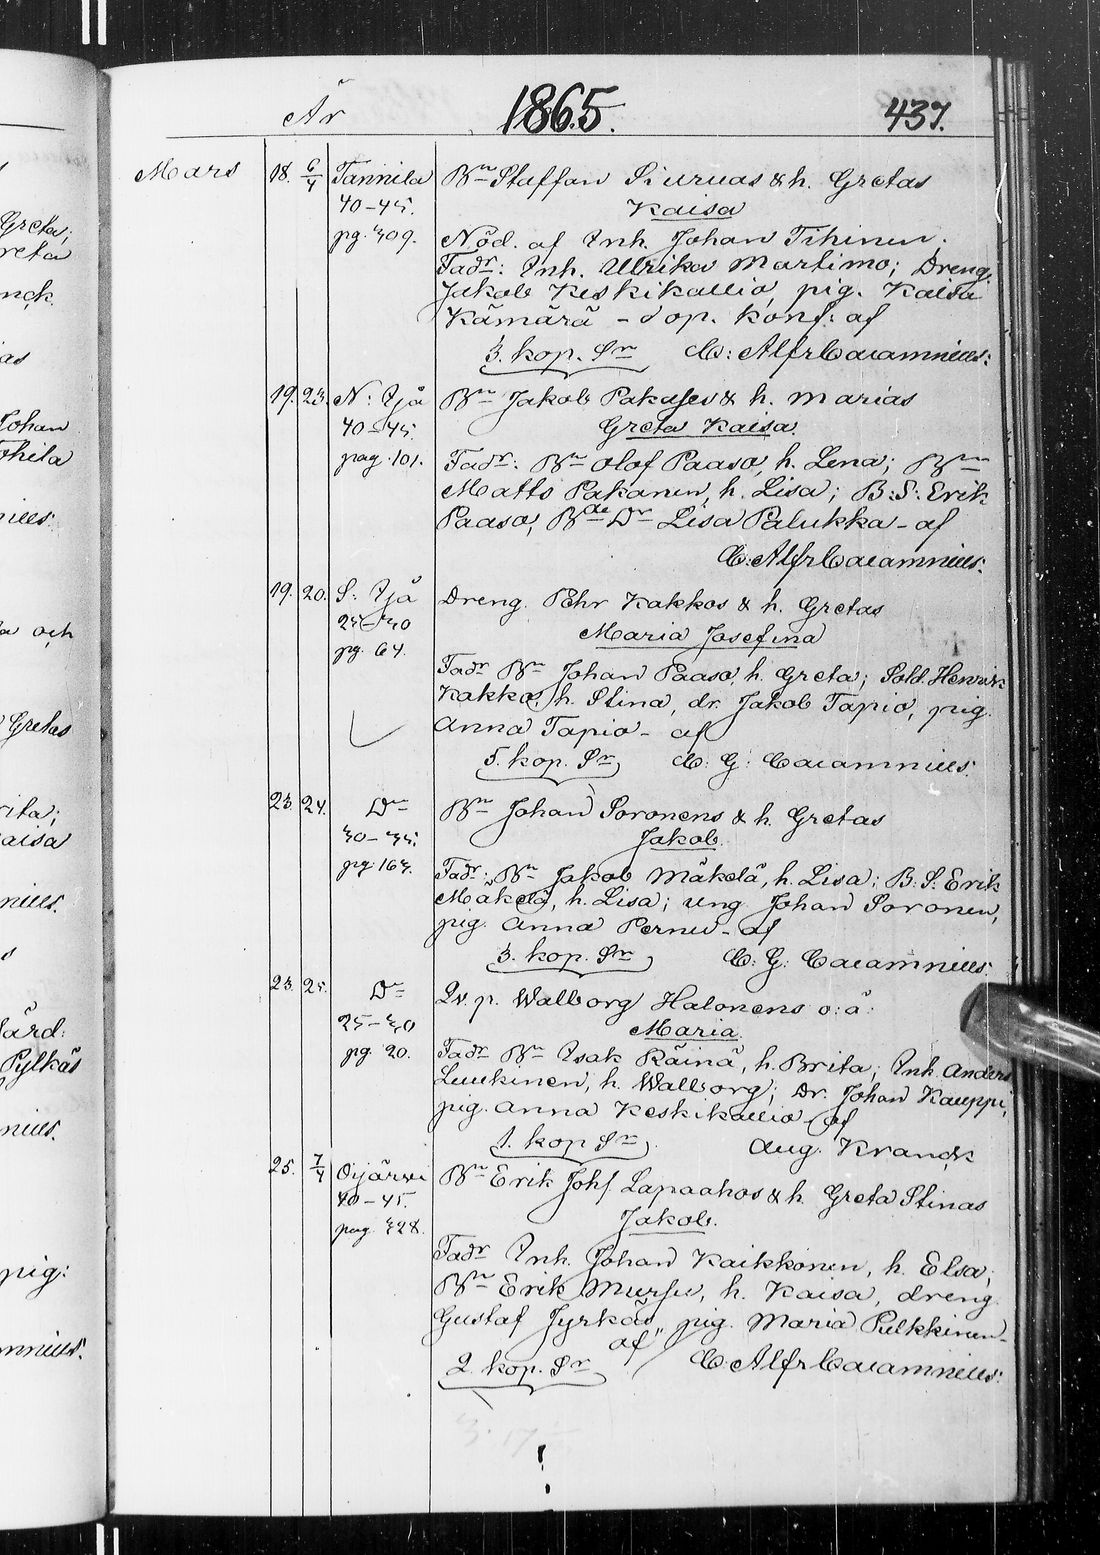 År 1865. 437.
Mars 18. 6/4 Tannila Bn Staffan Siuruas & h. Gretas
40-45. Kaisa
pg. 309. Nöd. af Inh. Johan Tihinen.
Fadr: Inh. Ulrika Martimo; Dreng.
Jakob Keskikallio, pig. Kaisa
Kämärä - döp. konf. af
3. kop. Sr C: Alfr Calamnius:
19. 23. N: Ijå Bn Jakob & h. Marias
40-45. Greta Kaisa.
pag. 101. Fadr: Bn Olof Paaso, h. Lena; Bn
Matts Pakanen, h. Lisa; B:S: Erik
Paaso, Bde Dr Lisa Palukka - af
C: Alfr Calamnius:
19. 20. S: Ijå Dreng. Pehr Kakkos & h. Gretas
25-30 Maria Josefina
pg. 64. Fadr Bn Johan Paaso, h. Greta; Sold. Henrik
Kakko, h. Stina, dr. Jakob Tapio, pig.
Anna Tapio - af
5. kop. Sr C: G: Calamnius.
23. 24. Do Bn Johan Soronens & h. Gretas
30-35. Jakob.
pg. 163. Fadr: Bn Jakob Mäkelä, h. Lisa; B. S. Erik
Mäkelä, h. Lisa; ung. Johan Soronen,
pig. Anna Pernu - af
3. kop. Sr C: G: Calamnius.
23. 25. Do Qv. p. Walborg Halonens o: ä:
25-30 Maria.
pg. 20. Fadr Bn Isak Räinä, h. Brita; Inh. Anders
Luukinen, h. Walborg; Dr. Johan Kauppi,
pig. Anna Keskikallio af
1. kop Sr Aug. Kranck
25. 7/4 Oijärvi Bn Erik Johs. Lapaahos & h. Greta Stinas
40-45. Jakob.
pag. 328. Fadr Inh. Johan Kaikkonen, h. Elsa;
Bn Erik Mursu, h. Kaisa, dreng.
Gustaf Jyrkäs, pig. Maria Pulkkinen -
af
2. kop. Sr C: Alfr Calamnius: